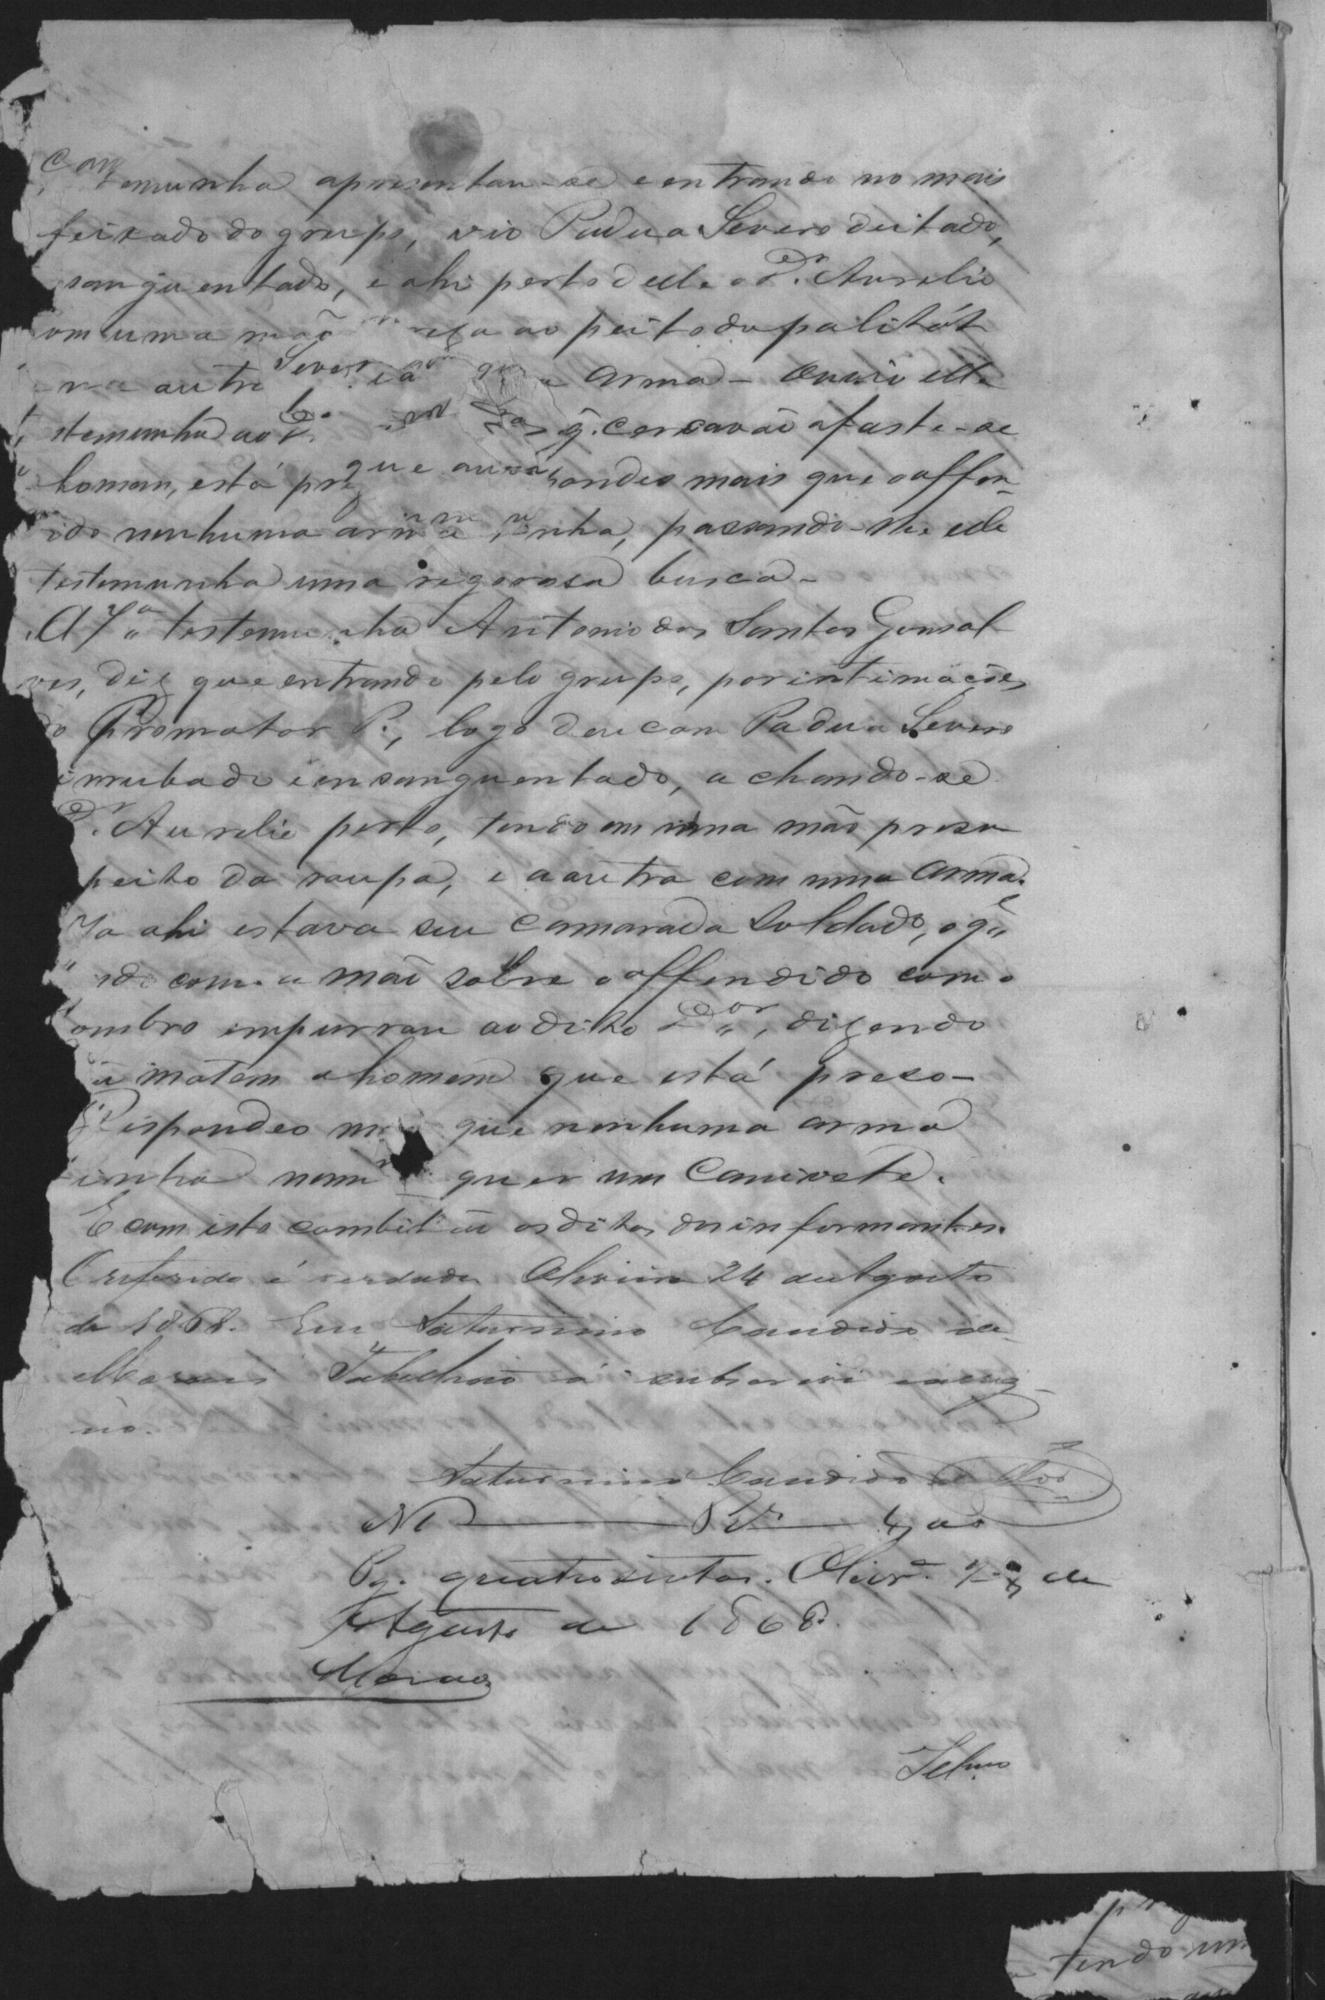 temunha apresentan-se e entrando no mais
feixado do grupo, vio Padua Severo deitado,
sanguentado, e ahi perto delle o Dr. Aurelio
om uma mão ao peito do palitót
outra arma - Ouvio elle
stemunha ao q. cercavão afaste-se
homem, está que ondeo mais que o offen-
ido nenhuma arma inha, passando-lhe elle
testemunha uma rigorosa busca-
A 7a testemunha Antonio dos Santos Gonsal
ves, diz que entrando pelo grupo, por intimações
do Promotor P., logo deu com Padua Severo
rrubado e ensanguentado, achando-se
Dr. Aurelio perto, tendo em uma mão presa
peito da roupa, e a outra com uma arma.
Ja ahi estava seu camarada soldado, o ql
ido com a mão sobre o offendido com o
ombro empurrou ao dito Dor, dizendo
matem o homem que está preso-
Respondeo que nenhuma arma
inha nem quer um canivete.
E com isto os ditos dos informantes.
O referido é verdade Oliveira 24 de Agosto
de 1868. Eu Saturnino Candido de
Moraes Tabelião á subscrivi e assig-
no.
Saturnino Candido de
400
Pg. quatrocentos. Olivra. de
Agosto de 1868.
Moraes
tendo um